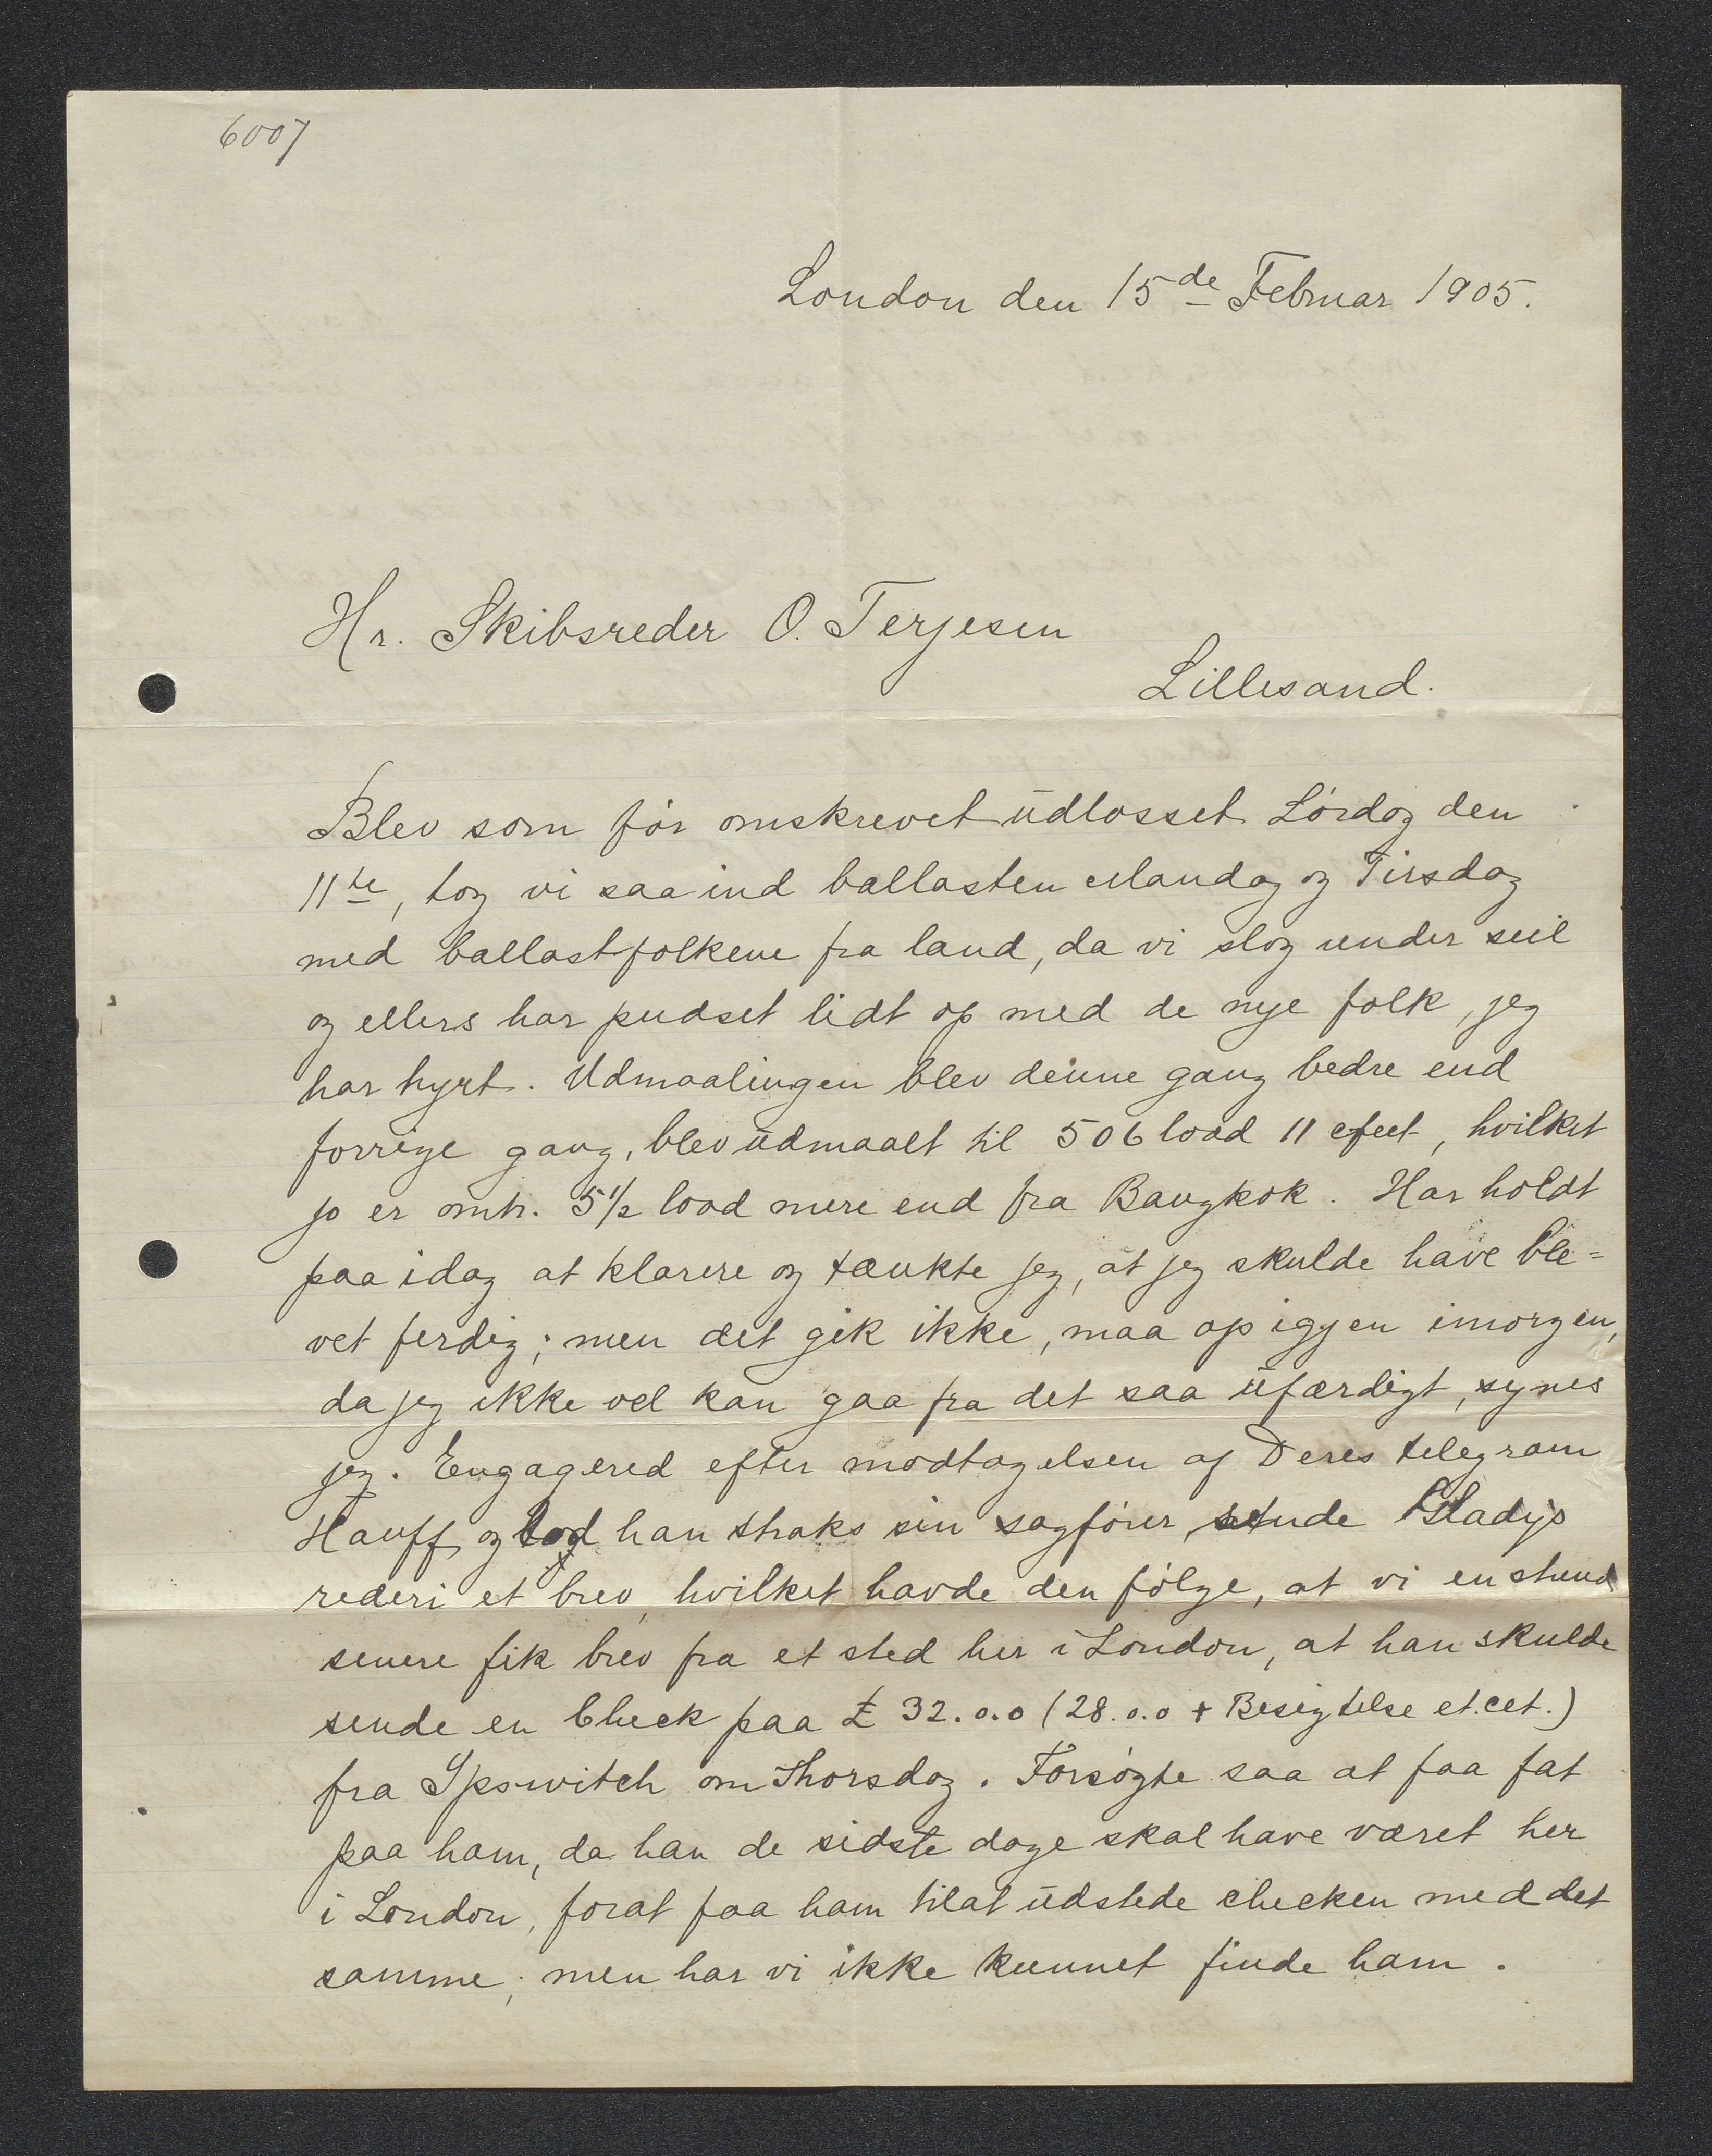 6007
London den 15de Februar 1905.
Hr. Skibsreder O. Terjesen
Lillesand.
Blev som før omskrevet udlosset Lørdag den
11te, tog vi saa ind ballasten Mandag og Tirsdag
med ballastfolkene fra land, da vi slog under seil
og ellers har pudset lidt op med de nye folk, jeg
har hyrt. Udmaalingen blev denne gang bedre end
forrige gang, blev udmaalt til 506 load 11 cfeet, hvilket
jo er omtr. 5 1/2 load mere end fra Bangkok. Har holdt
paa idag at klarere og tænkte jeg, at jeg skulde have ble=
vet ferdig; men det gik ikke, maa op igjen imorgen,
da jeg ikke vel kan gaa fra det saa ufærdigt, synes
jeg. Engagered efter modtagelsen af Deres telegram
Hauff og lod han straks sin sagfører sende Gladys
rederi et brev, hvilket havde den følge, at vi en stund
senere fik brev fra et sted her i London, at han skulde
sende en Check paa £ 32.0.0 (28.0.0 + Besigtelse et.cet.)
fra Ipswitch om Thorsdag. Forsøgte saa at faa fat
paa ham, da han de sidste dage skal have været her
i London, forat faa ham tilat udstede checken med det
samme; men har vi ikke kunnet finde ham.